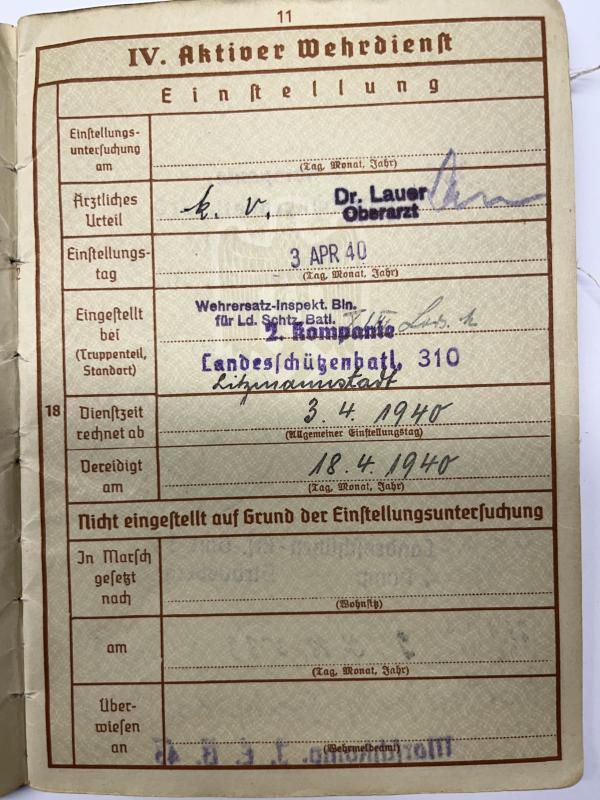 11
IV. Aktiver Wehrdienst
Einstellung
Einstellungs-
untersuchung
am
(Tag, Monat, Jahr)
Ärztliches
Urteil
k. v.
Dr. Lauer
Oberarzt
Einstellungs-
tag
3 APR 40
(Tag, Monat, Jahr)
Eingestellt
bei
(Truppenteil,
Standort)
Wehrersatz-Inspekt. Bln.
für Ld. Schtz. Batl.
2. Kompanie
Landesschützenbatl. 310
Litzmannstadt
18
Dienstzeit
rechnet ab
3. 4. 1940
(Allgemeiner Einstellungstag)
Vereidigt
am
18. 4. 1940
(Tag, Monat, Jahr)
Nicht eingestellt auf Grund der Einstellungsuntersuchung
In Marsch
gesetzt
nach
(Wohnsitz)
am
(Tag, Monat, Jahr)
Über-
wiesen
an
(Wehrmeldeamt)